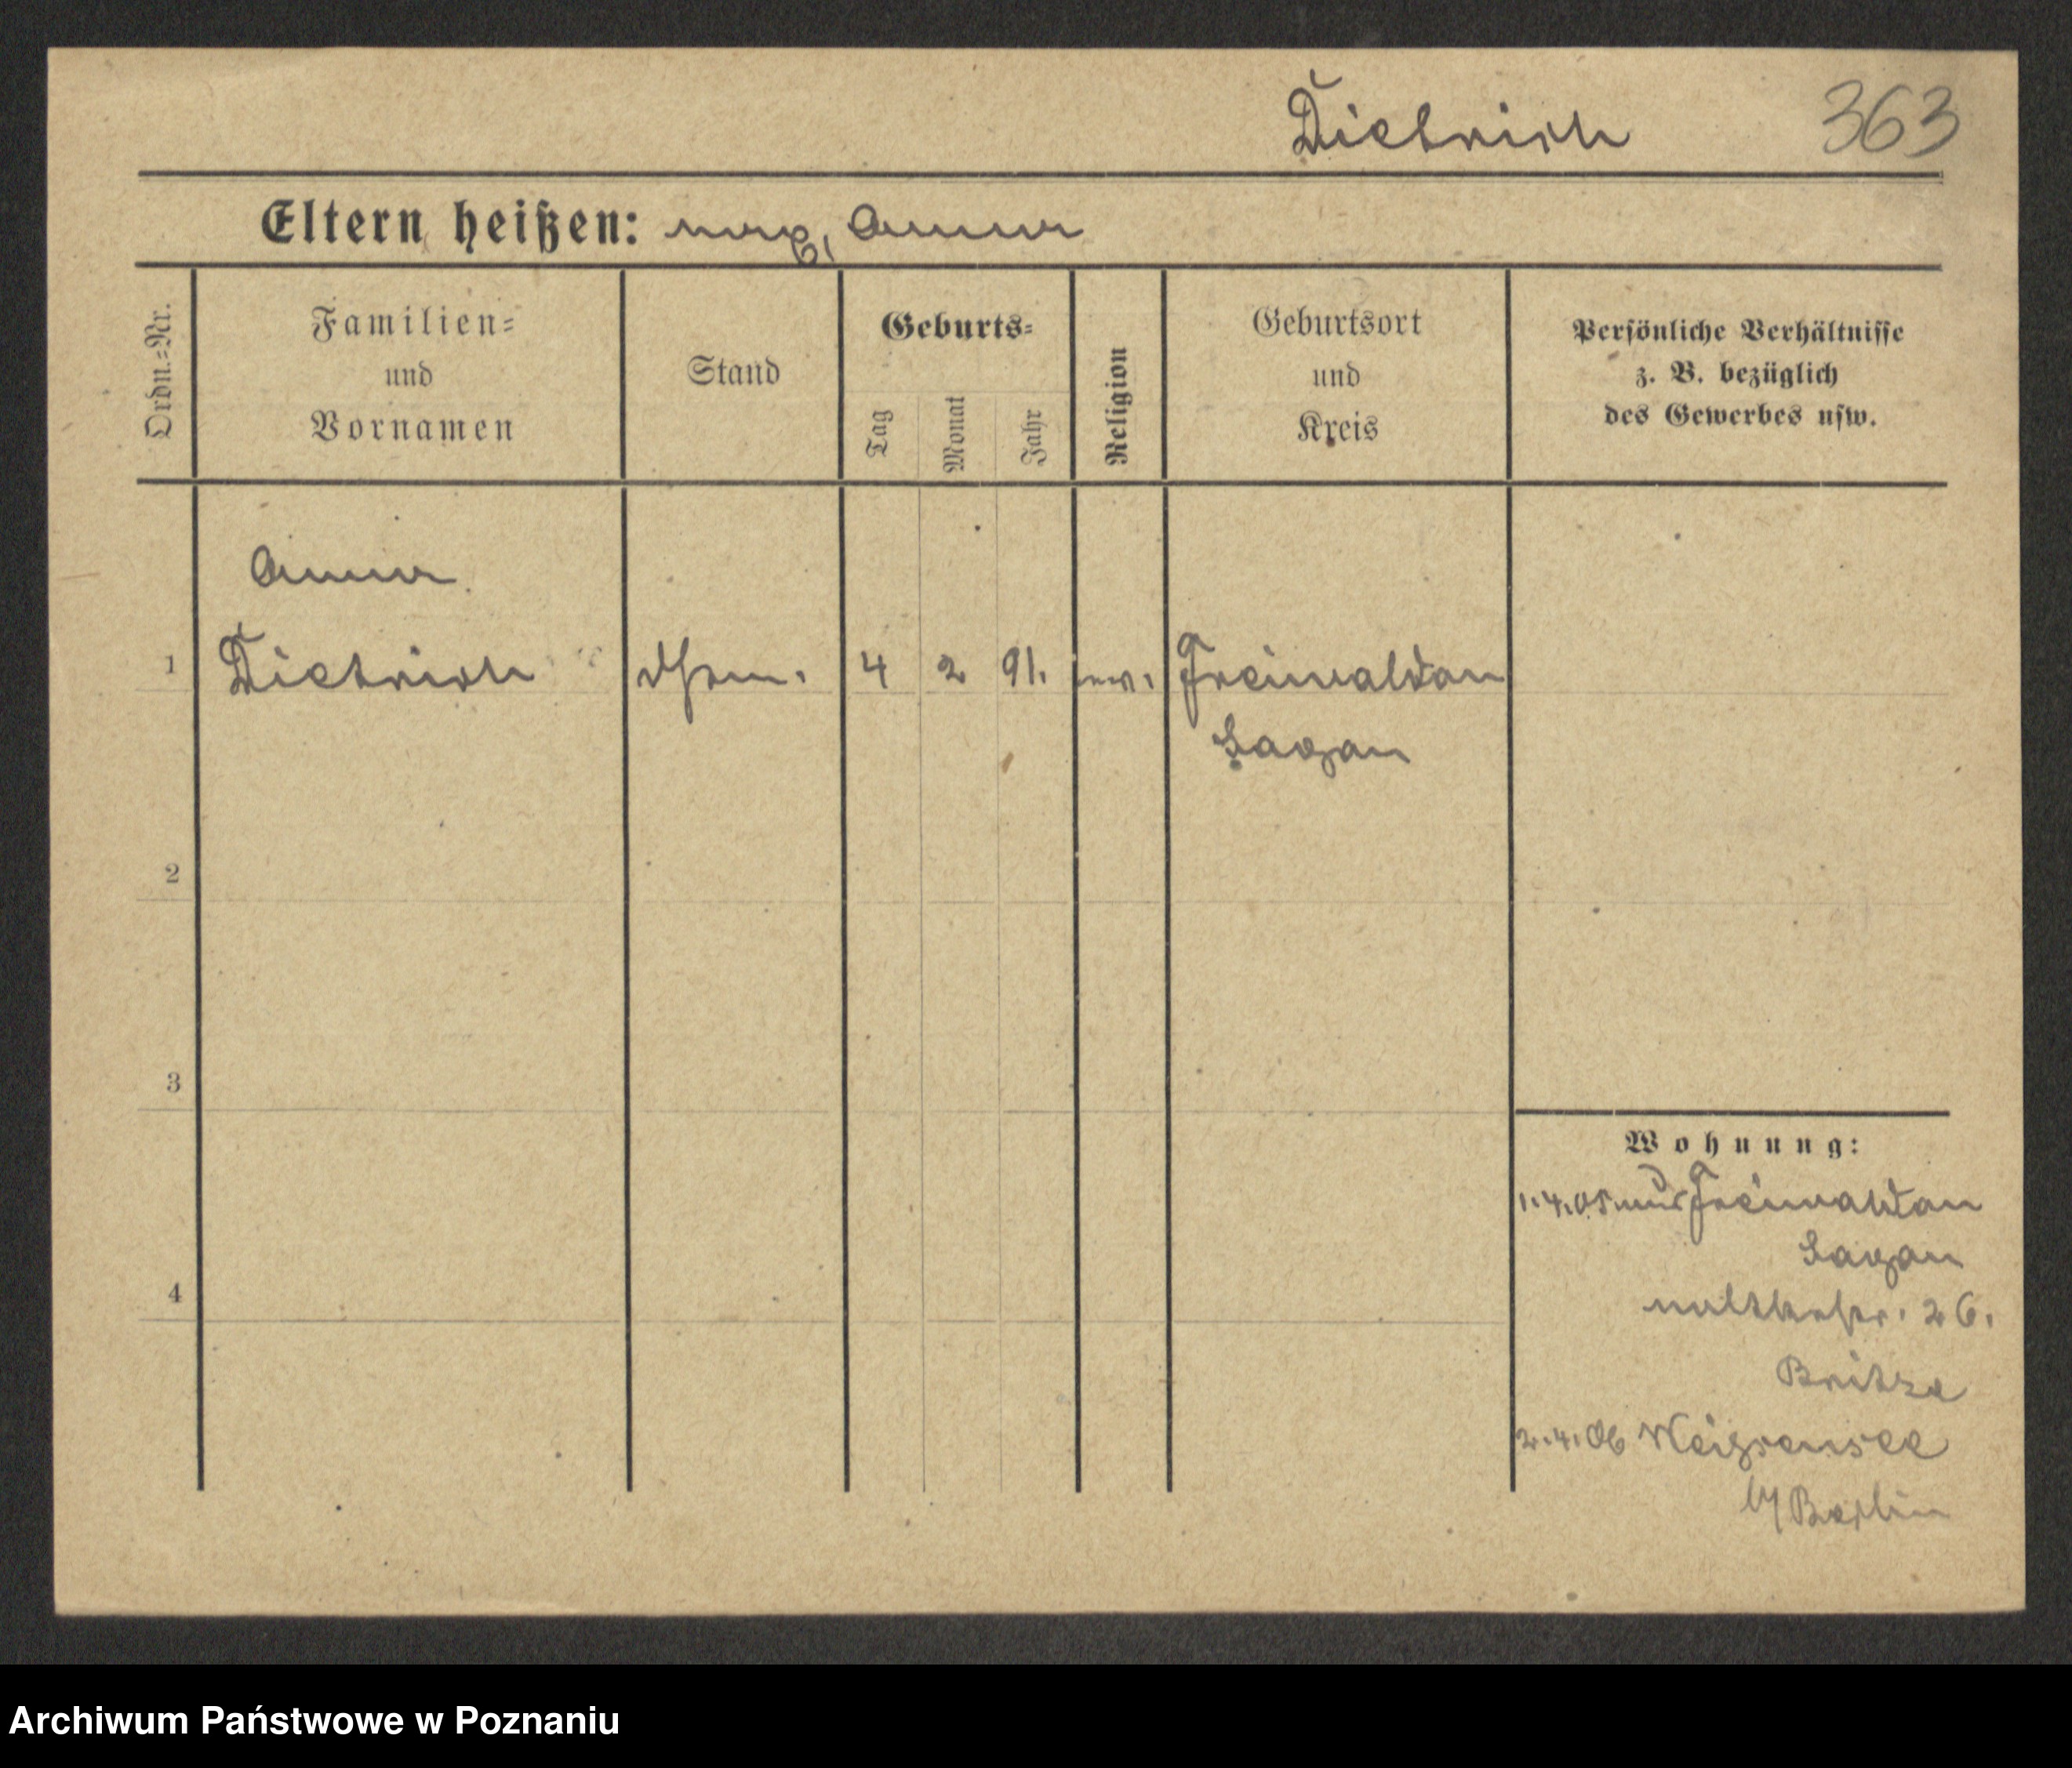 Dietrich 363
Eltern heißen: Max, Anna
Ordn.=Nr.
Familien=
und
Vornamen
Stand
Geburts=
Tag
Monat
Jahr
Religion
Geburtsort
und
Kreis
Persönliche Verhältnisse
z. B. bezüglich
des Gewerbes usw.
Anna
1 Dietrich 4 2 91. Freiwaldau
Sagan
2
3
4
Wohnung:
1.4.05 aus Freiwaldau
Sagan
Moltkestr. 26.
Britze
2.4.06 Weissensee
b/ Berlin
Archiwum Państwowe w Poznaniu